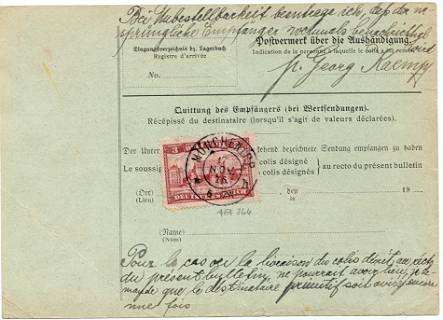 Bei Unbestellbarkeit beantrage ich, daß der ur-
sprüngliche Empfänger nochmals benachrichtigt
wird
Eingangsverzeichnis bz. Lagerbuch
Registre d'arrivée
Postvermerk über die Aushändigung
Indication de la personne à laquelle le colis a été
No.
p. Georg Kaempf
Quittung des Empfängers (bei Wertsendungen).
Récépissé du destinataire (lorsqu'il s'agit de valeurs déclarées).
Der Unter
stehend bezeichnete Sendung empfangen zu haben.
Le soussig
colis désigné
colis désigné
au recto du présent bulletin
3
3
MÜNCHEN
NOV
16
DEUTSCHES REICH
(Ort)
(Lieu)
den
le
19
(Name)
(Nom)
Pour le cas où la livraison du colis désigné au recto
du présent bulletin, ne pourrait avoir lieu, je de-
mande que le destinataire primitif soit avisé encore
une fois